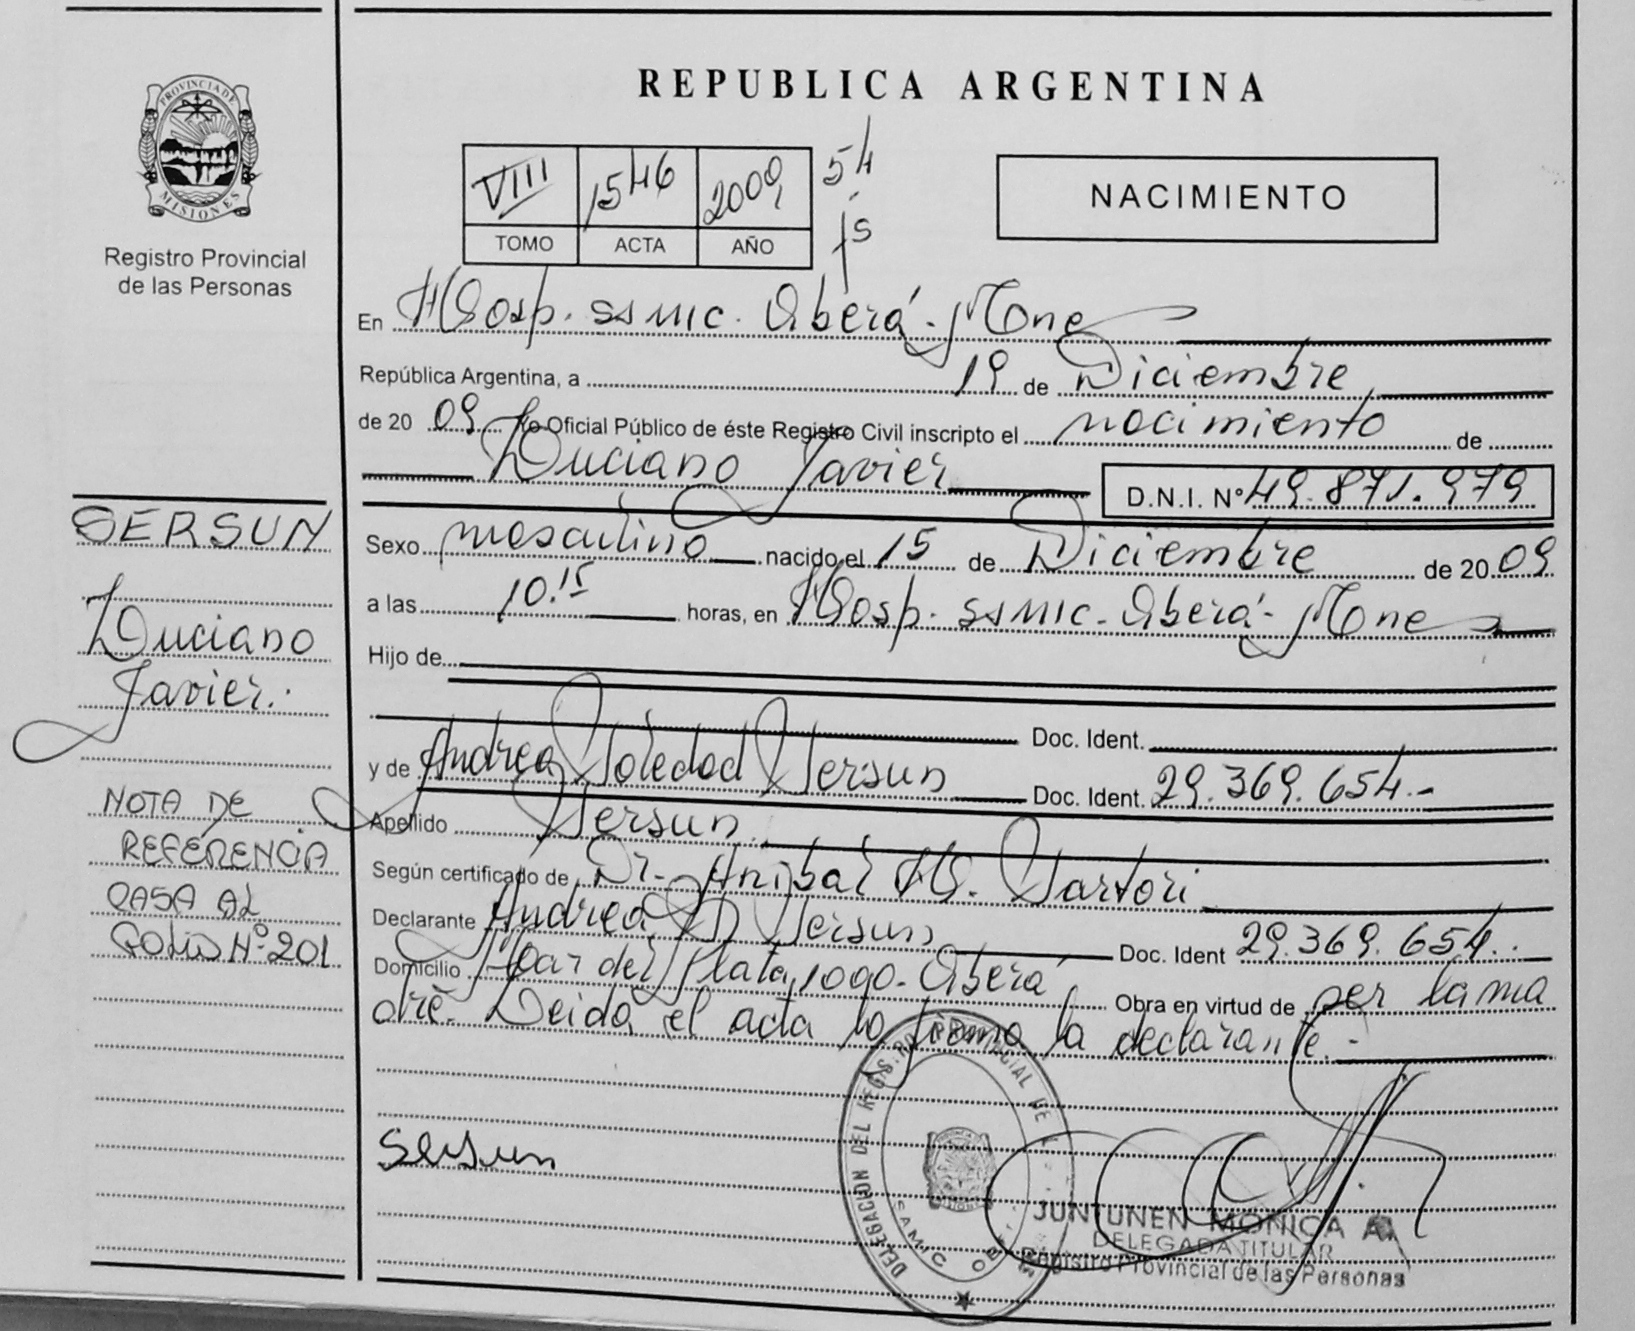 PROVINCIA DE
MISIONES
Registro Provincial
de las Personas
REPUBLICA ARGENTINA
VIII 1546 2009 54
TOMO ACTA AÑO
NACIMIENTO
En Hosp. SAMIC. Oberá - Mnes
República Argentina, a 19 de Diciembre
de 20 09 Yo Oficial Público de éste Registro Civil inscripto el nacimiento de
Luciano Javier D.N.I. Nº 49.871.979
Sexo masculino nacido el 15 de Diciembre de 20 09
a las 10.15 horas, en Hosp. SAMIC - Oberá - Mnes
Hijo de
Doc. Ident.
y de Andrea Soledad Sersun Doc. Ident. 29.369.654.-
Apellido Sersun
Según certificado de Dr. Anibal H. Sartori
Declarante Andrea S. Sersun Doc. Ident 29.369.654.
Domicilio Mar del Plata 1090 - Oberá Obra en virtud de ser la ma
dre. Leida el acta la firma la declarante.-
SERSUN
Luciano
Javier.
NOTA DE
REFERENCIA
PASA AL
FOLIO Nº 201
Sersun
DELEGACION DEL REGISTRO PROVINCIAL DE
SAMIC
JUNTUNEN MONICA A.
DELEGADA TITULAR
Registro Provincial de las Personas